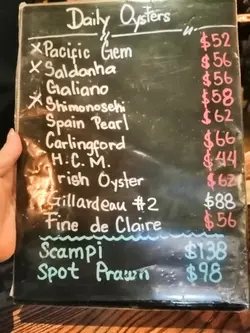 Daily Oysters
x Pacific Gem $52
x Saldanha $56
Galiano $56
x Shimonoseki $58
Spain Pearl $62
Carlingford $66
H.C.M. $44
Irish Oyster $62
Gillardeau #2 $88
Fine de Claire $56
Scampi $138
Spot Prawn $98